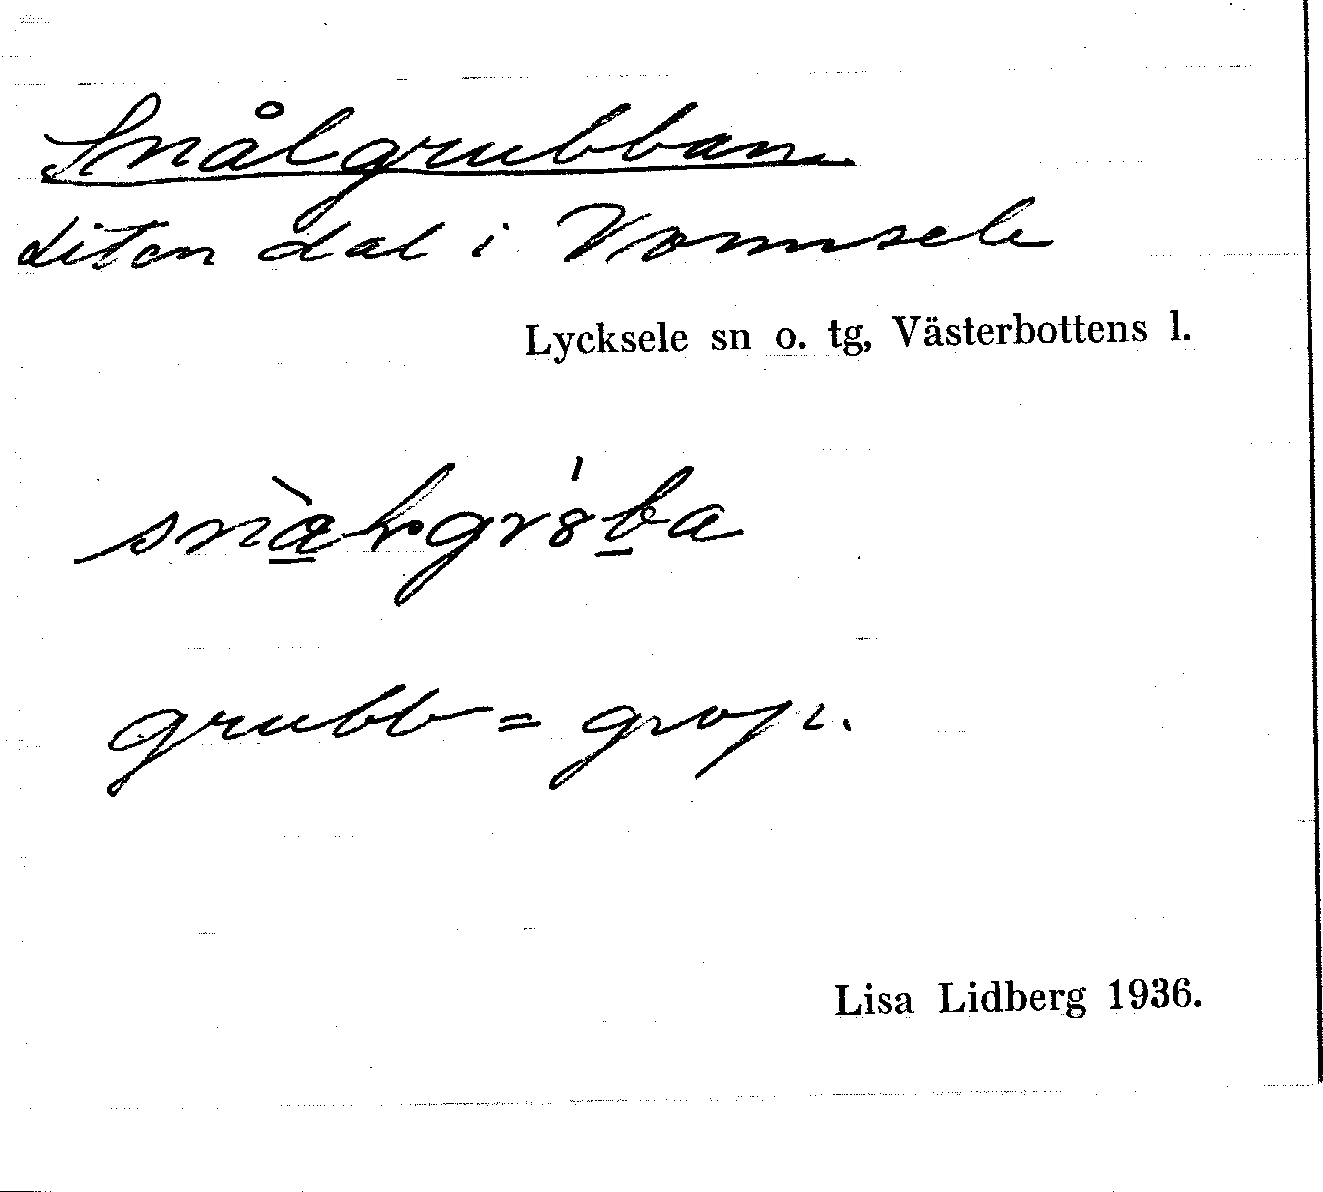 Snålgrubban
Liten dal i Vormsele
Lycksele sn o. tg, Västerbottens l.
grubb = grop.
Lisa Lidberg 1936.